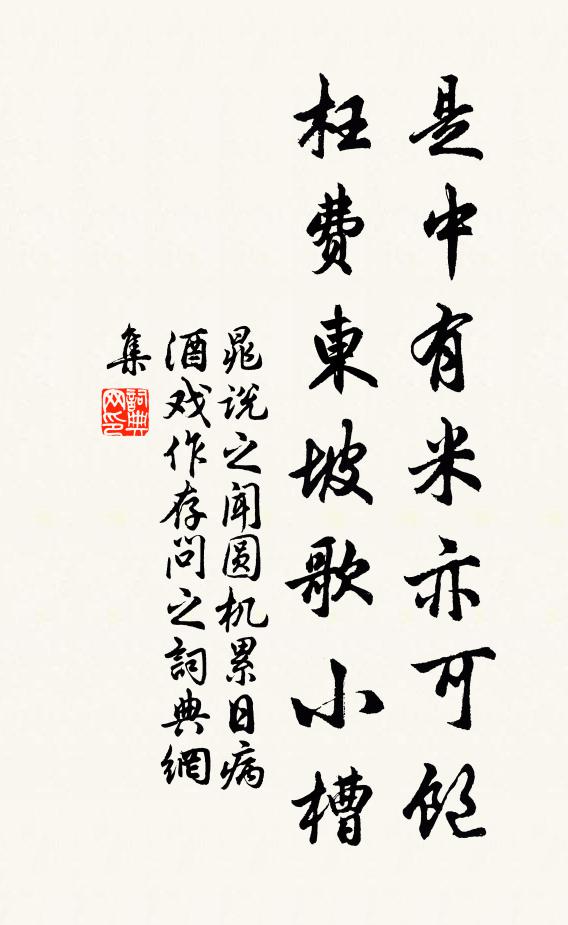 是中有米亦可飽
枉費東坡歌小槽
晁说之闻圆机累日病
酒戏作存问之詞典網
集
詞典网印